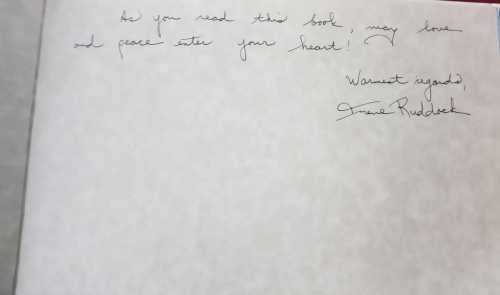 As you read this book, may love
and peace enter your heart!
Warmest regards,
Irene Ruddock